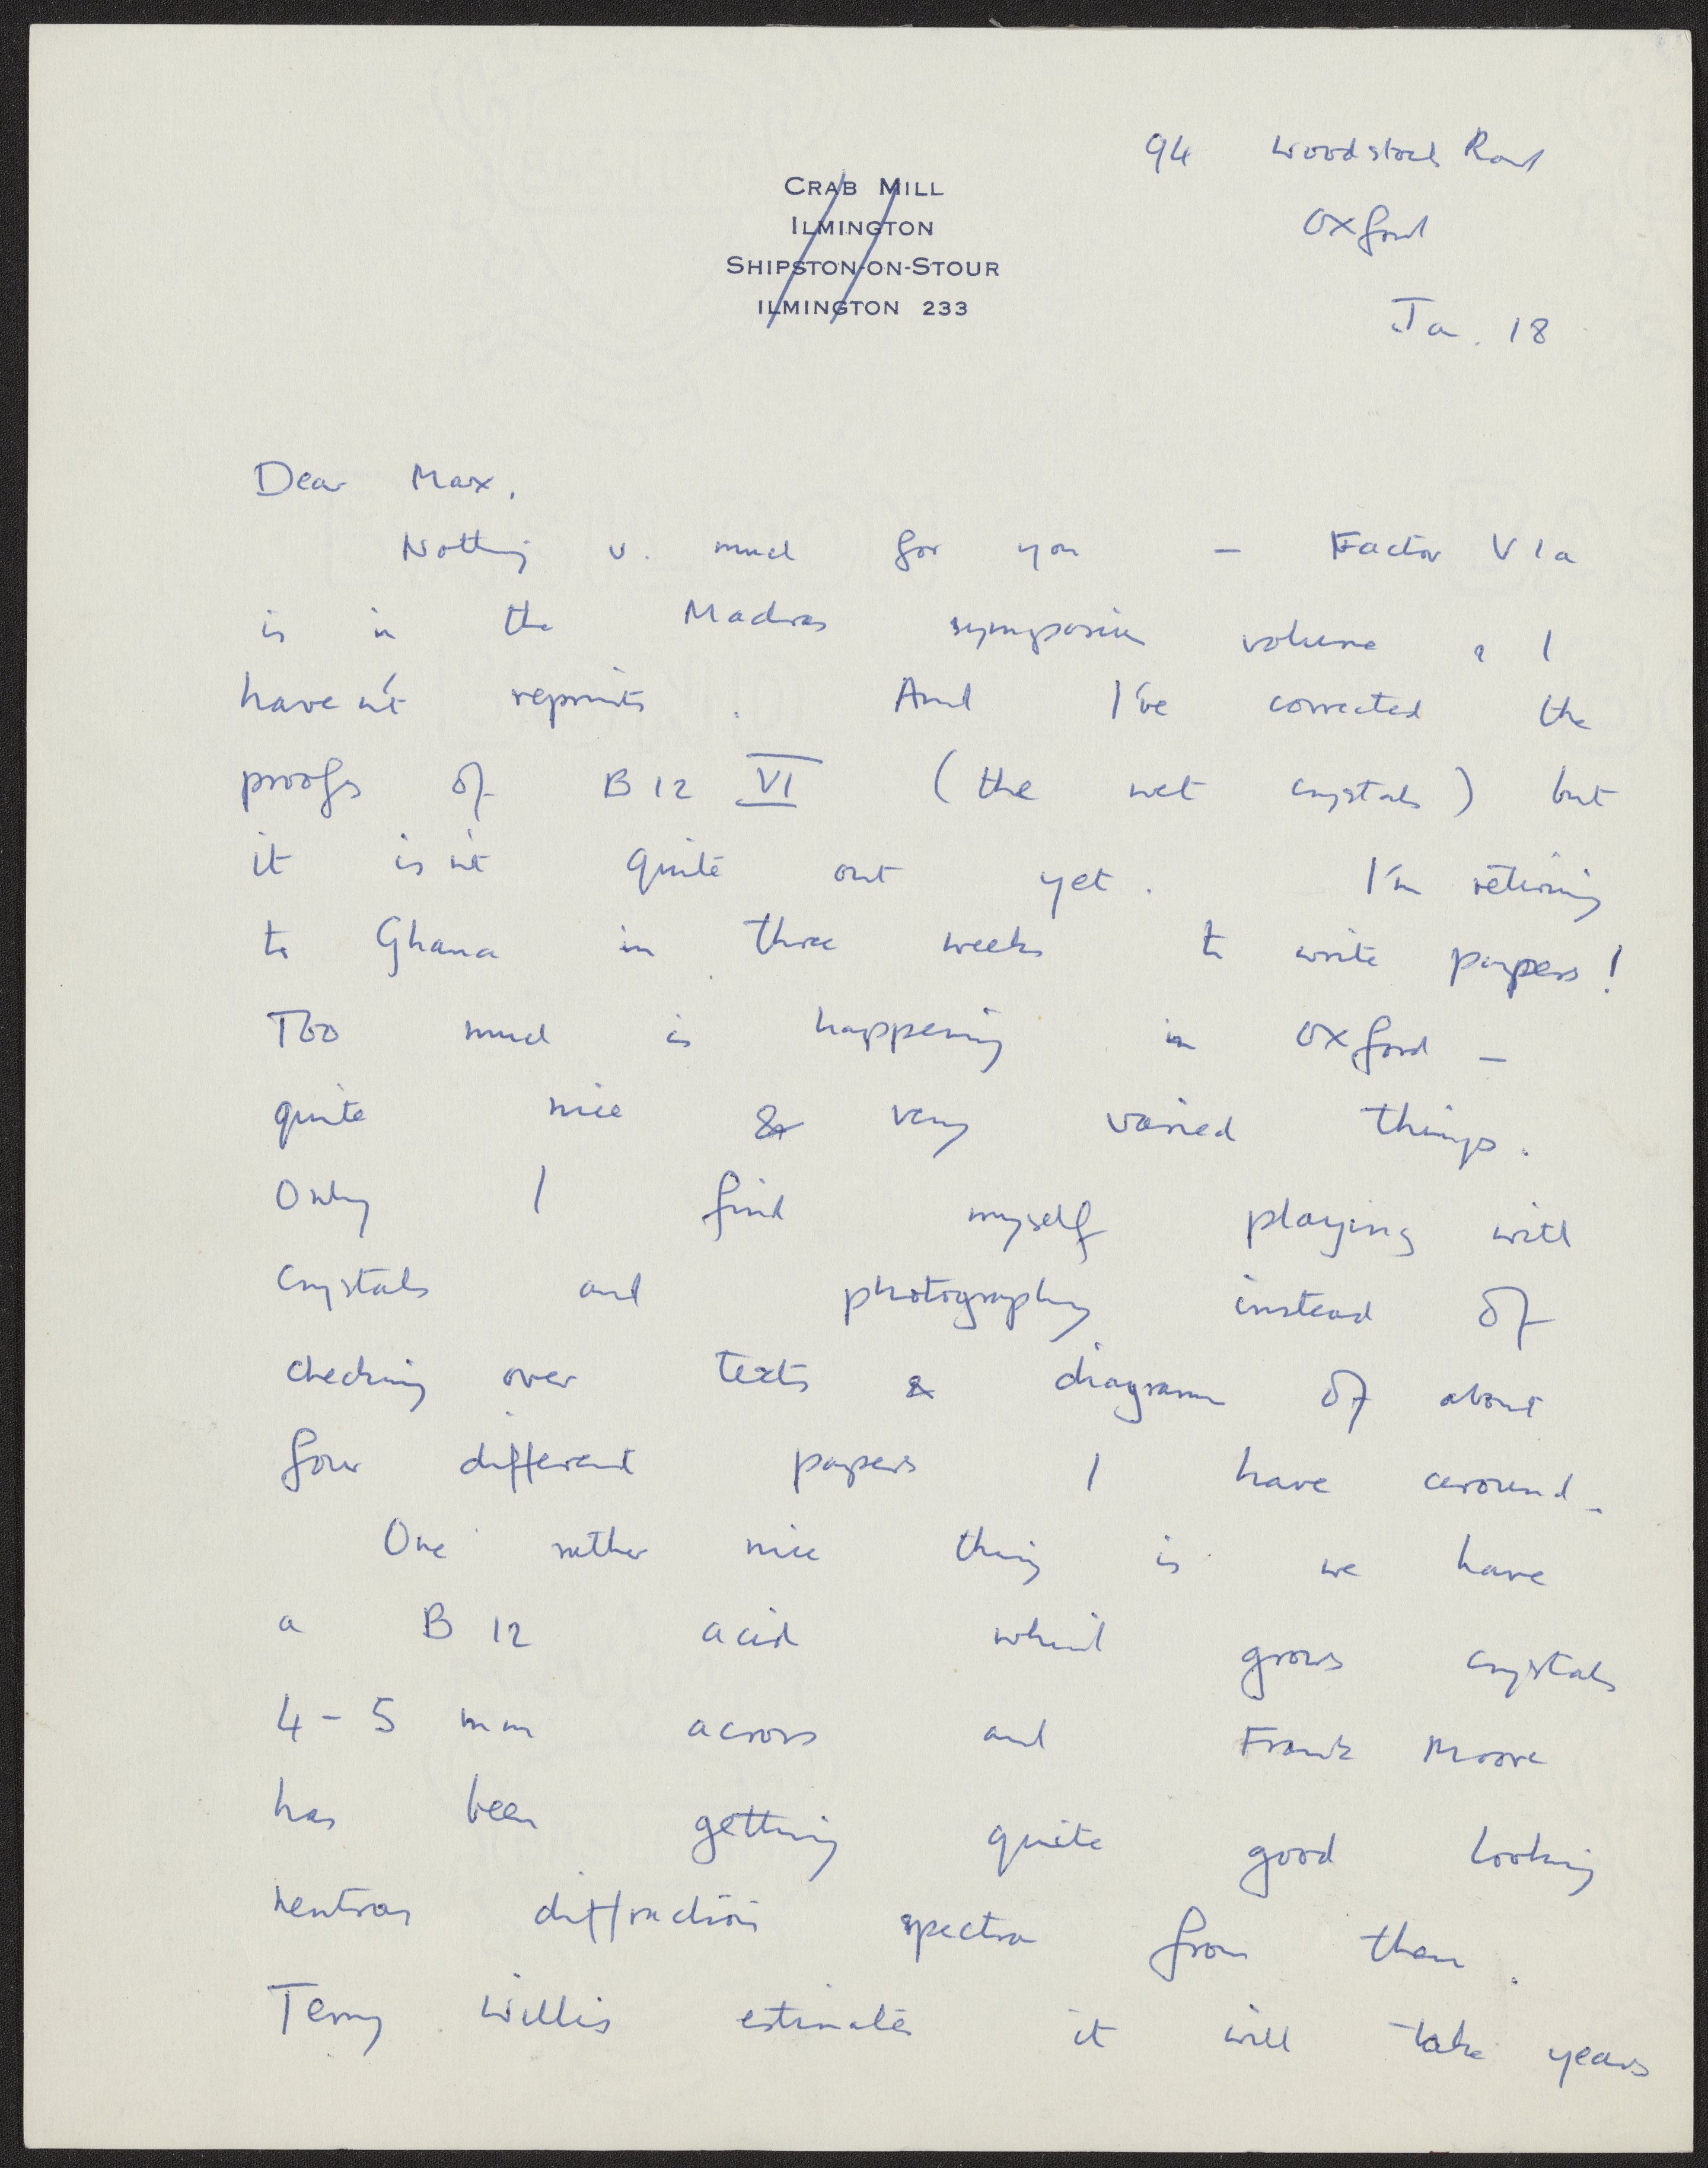 94 Woodstock Road
Oxford
Jan. 18
CRAB MILL
ILMINGTON
SHIPSTON-ON-STOUR
ILMINGTON 233
Dear Max,
Nothing v. much for you – Factor V1a
is in the Madras symposium volume & I
haven't reprints. And I've corrected the
proofs of B12 VI (the wet crystals) but
it isn't quite out yet. I'm retiring
to Ghana in three weeks to write papers!
Too much is happening in Oxford –
quite nice & very varied things.
Only I find myself playing with
crystals and photography instead of
checking over texts & diagrams of about
four different papers I have around.
One rather nice thing is we have
a B12 acid which grows crystals
4-5 mm across and Frank Moore
has been getting quite good looking
neutron diffraction spectra from them.
Terry Willis estimates it will take years